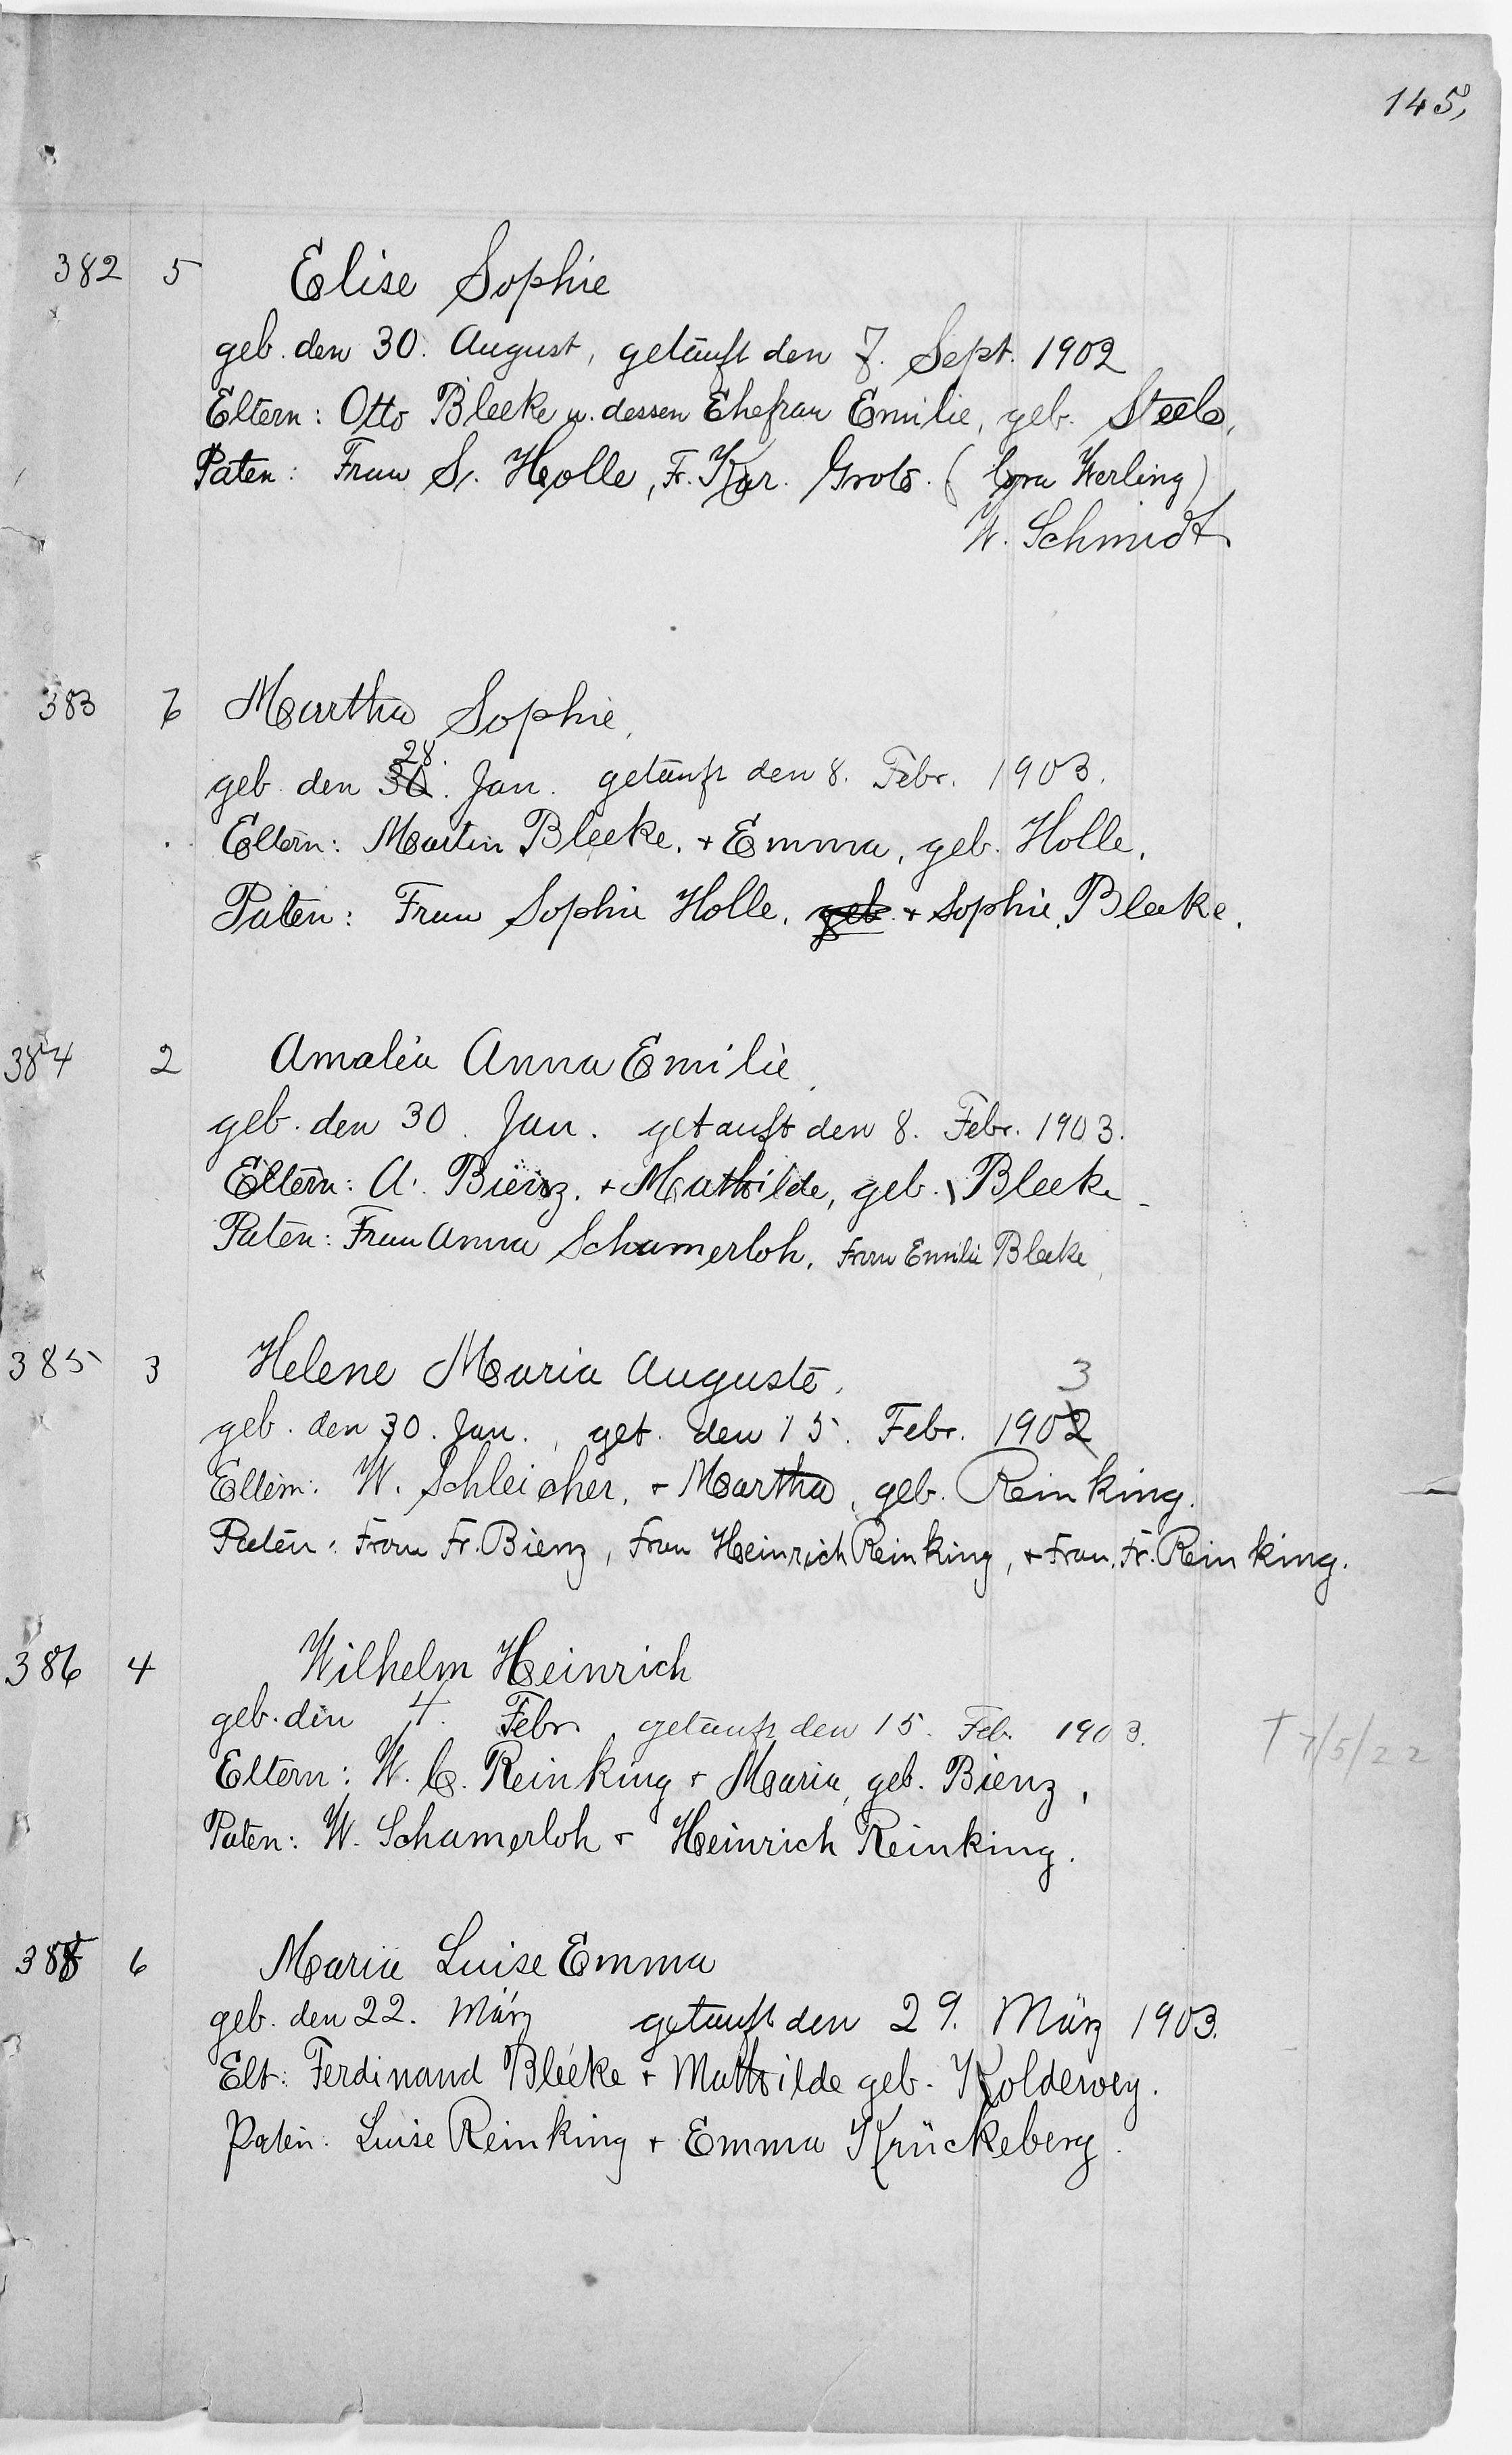 145,
382 5 Elise Sophie
geb. den 30. August, getäuft den 7. Sept. 1902
Eltern: Otto Bleeke u. dessen Ehefrau Emilie, geb.
Paten: Frau S. Holle, Fr. Kar. Grote. (Cora Werling)
W. Schmidt
383 Martha Sophie,
28.
geb. den 30. Jan. getäuft den 8. Febr. 1903.
Eltern: Martin Bleeke. + Emma, geb. Holle.
Paten: Frau Sophie Holle. geb. + Sophie Bleeke.
384 2 Amalia Anna Emilie.
geb. den 30. Jan. getauft den 8. Febr. 1903.
Eltern: A. Bienz. + Mathilde, geb. Bleeke
Paten: Frau Anna Schamerloh, Frau Emilie Bleeke,
385 3 Helene Maria Auguste,
3
geb. den 30. Jan., get. den 15. Febr. 1902
Eltern: W. Schleicher, + Martha, geb. Reinking.
Paten: Frau Fr. Bienz, Frau Heinrich Reinking, + Frau. Fr. Reinking.
386 4 Wilhelm Heinrich
geb. den 4. Febr. getäuft den 15. Feb. 1903. † 7/5/22
Eltern: W. C. Reinking + Maria, geb. Bienz,
Paten: W. Schamerloh + Heinrich Reinking.
6 Maria Luise Emma
geb. den 22. März getäuft den 29. März 1903.
Elt: Ferdinand Bleeke + Mathilde geb. Koldewey.
Paten: Luise Reinking + Emma Krückeberg.